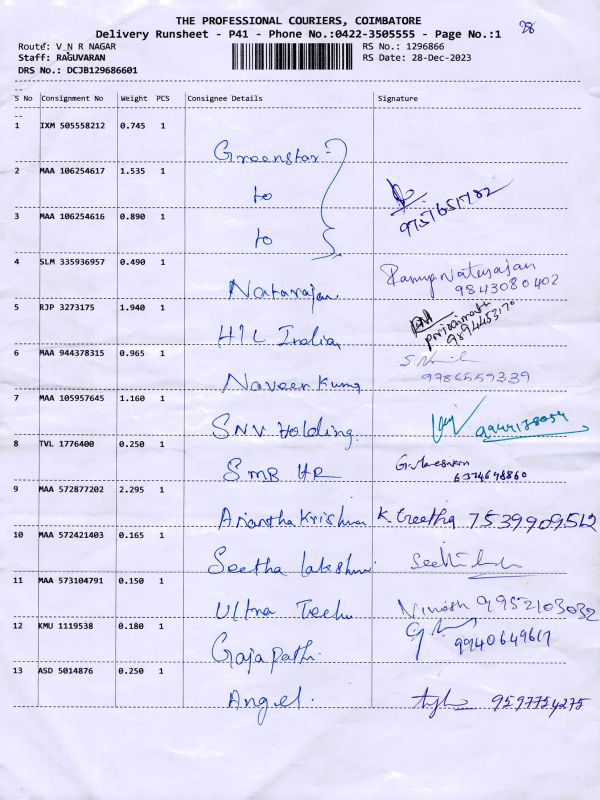 THE PROFESSIONAL COURIERS, COIMBATORE
28
Delivery Runsheet - P41 - Phone No.:0422-3505555 - Page No.:1
Route: V N R NAGAR
RS No.: 1296866
Staff: RAGUVARAN
RS Date: 28-Dec-2023
DRS No.: DCJB129686601
S No Consignment No Weight PCS Consignee Details Signature
1 IXM 505558212 0.745 1 Greenstar
2 MAA 106254617 1.535 1 to 9751651782
3 MAA 106254616 0.890 1 to
4 SLM 335936957 0.490 1 Natarajan Ramya Natarajan
9843080402
5 RJP 3273175 1.940 1 HIL Indian
9894453170
6 MAA 944378315 0.965 1 Naveen Kumar
9786559339
7 MAA 105957645 1.160 1 SNV Holding
8 TVL 1776400 0.250 1 SMR HR
6374698860
9 MAA 572877202 2.295 1 Anantha Krishnan K. Geetha 7539909512
10 MAA 572421403 0.165 1 Seetha Lakshmi
11 MAA 573104791 0.150 1 Ultra Tech 9952103032
12 KMU 1119538 0.180 1 Gajapathi 9940649617
13 ASD 5014876 0.250 1 Angel 9597754275